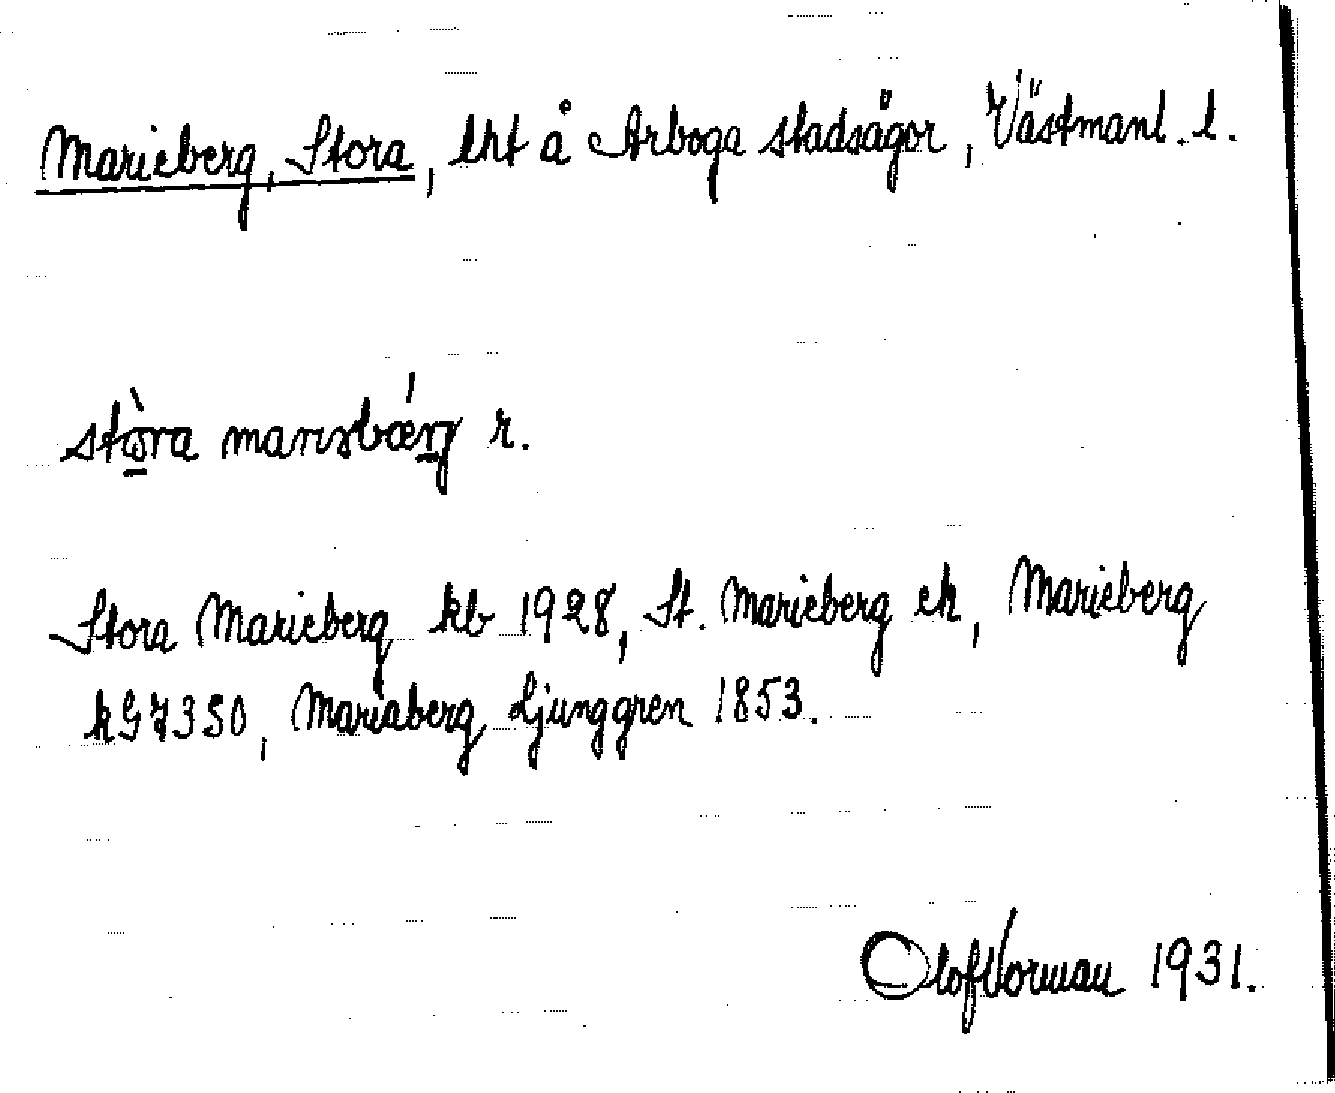 Marieberg, Stora, lht å Arboga stadsägor, Västmanl. l.
stòra marisbǽrg r.
Stora Marieberg kb 1928, St. Marieberg ek, Marieberg
kG7350, Mariaberg Ljunggren 1853.
Olof Norman 1931.